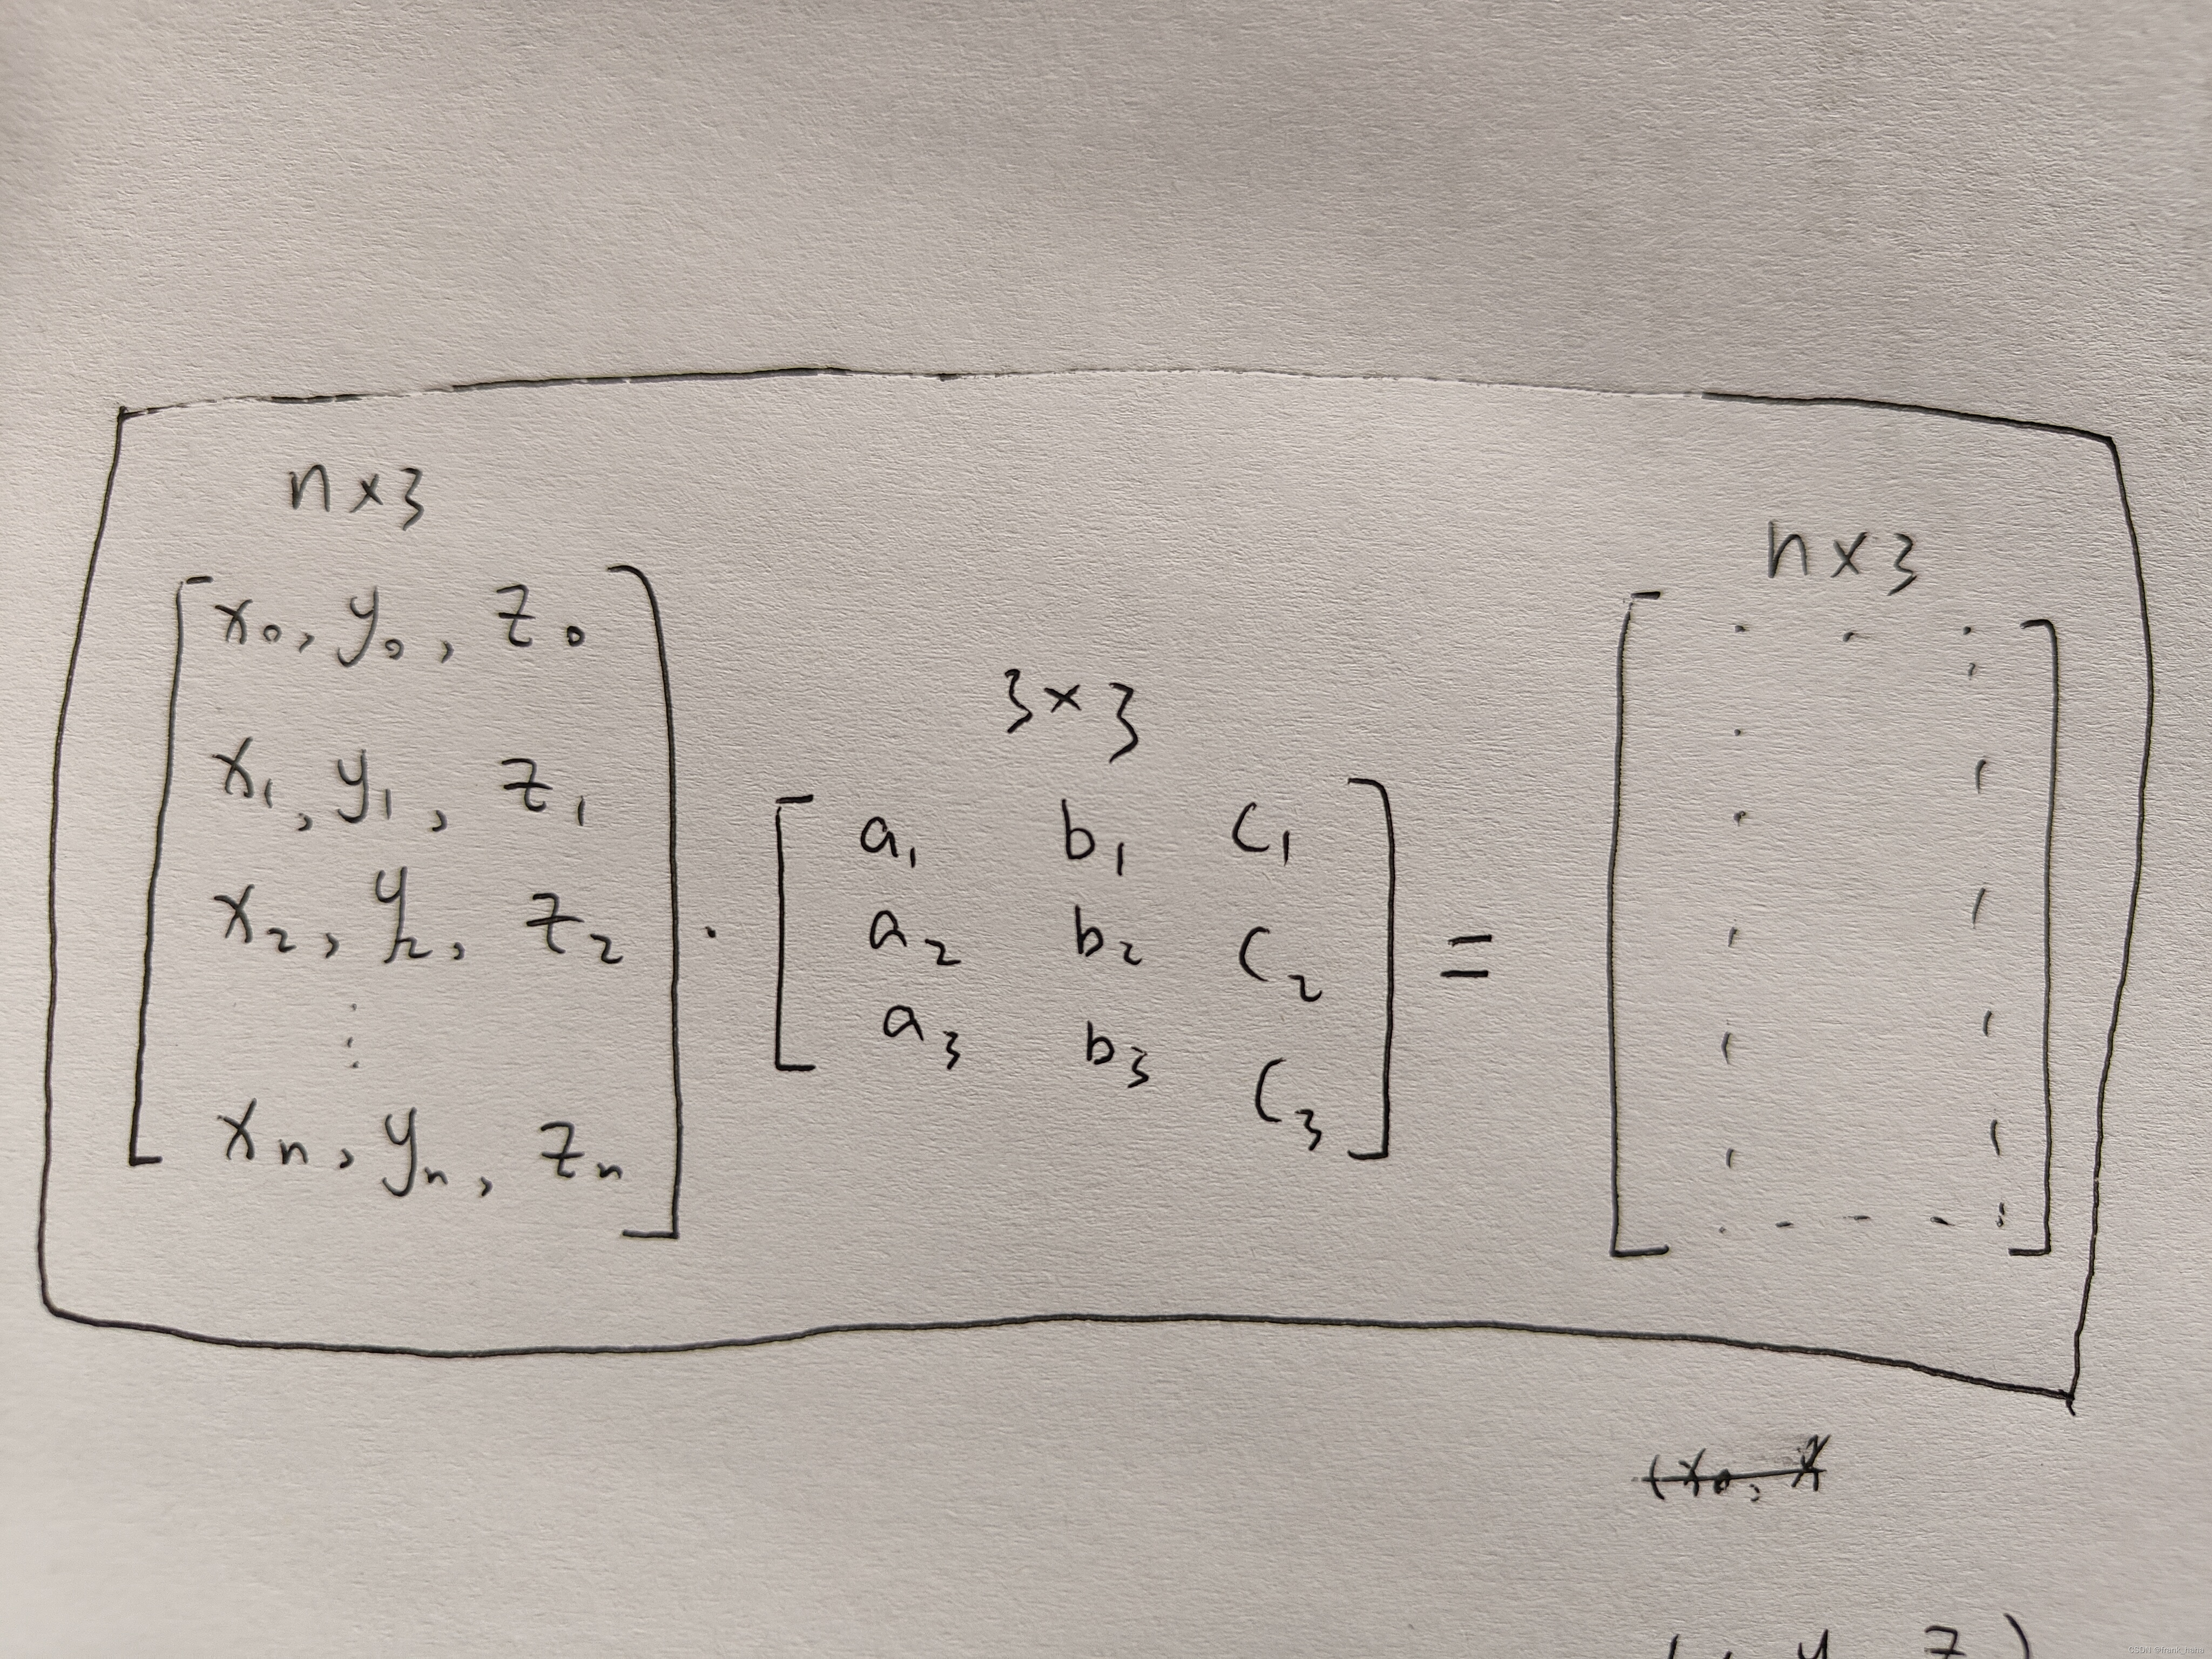 n×3
n×3
3×3
[x₀, y₀, z₀
x₁, y₁, z₁
x₂, y₂, z₂
⋮
xₙ, yₙ, zₙ]
·
[a₁ b₁ c₁
a₂ b₂ c₂
a₃ b₃ c₃]
=
(x₀, y
y z)